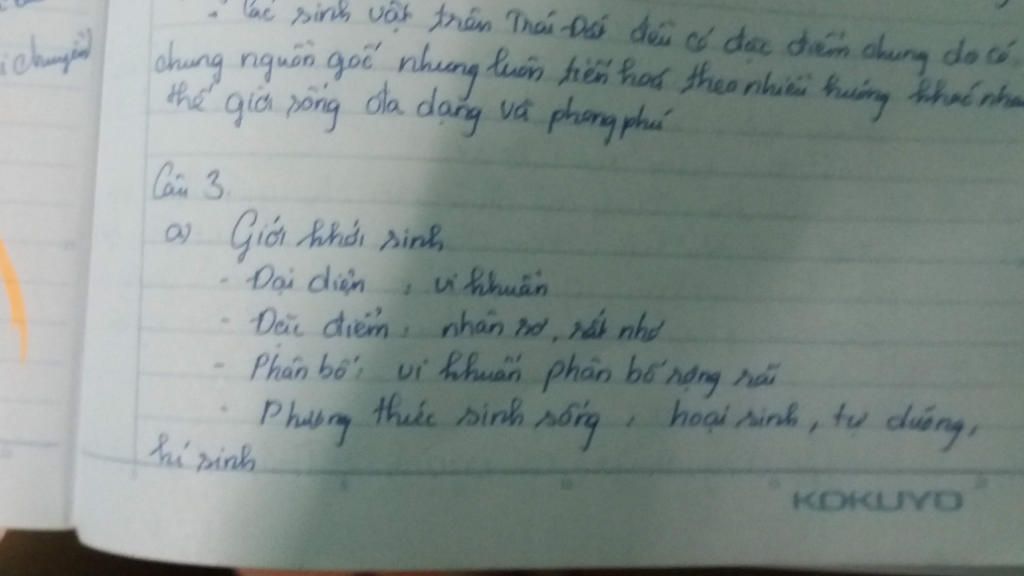 - Các sinh vật trên Trái Đất đều có đặc điểm chung do có
chung nguồn gốc nhưng luôn tiến hoá theo nhiều hướng khác nha
thế giới sống đa dạng và phong phú
i chuyển)
Câu 3.
a) Giới khởi sinh
- Đại diện : vi khuẩn
- Đặc điểm : nhân sơ, rất nhỏ
- Phân bố : vi khuẩn phân bố rộng rãi
- Phương thức sinh sống : hoại sinh, tự dưỡng,
kí sinh
KOKUYO